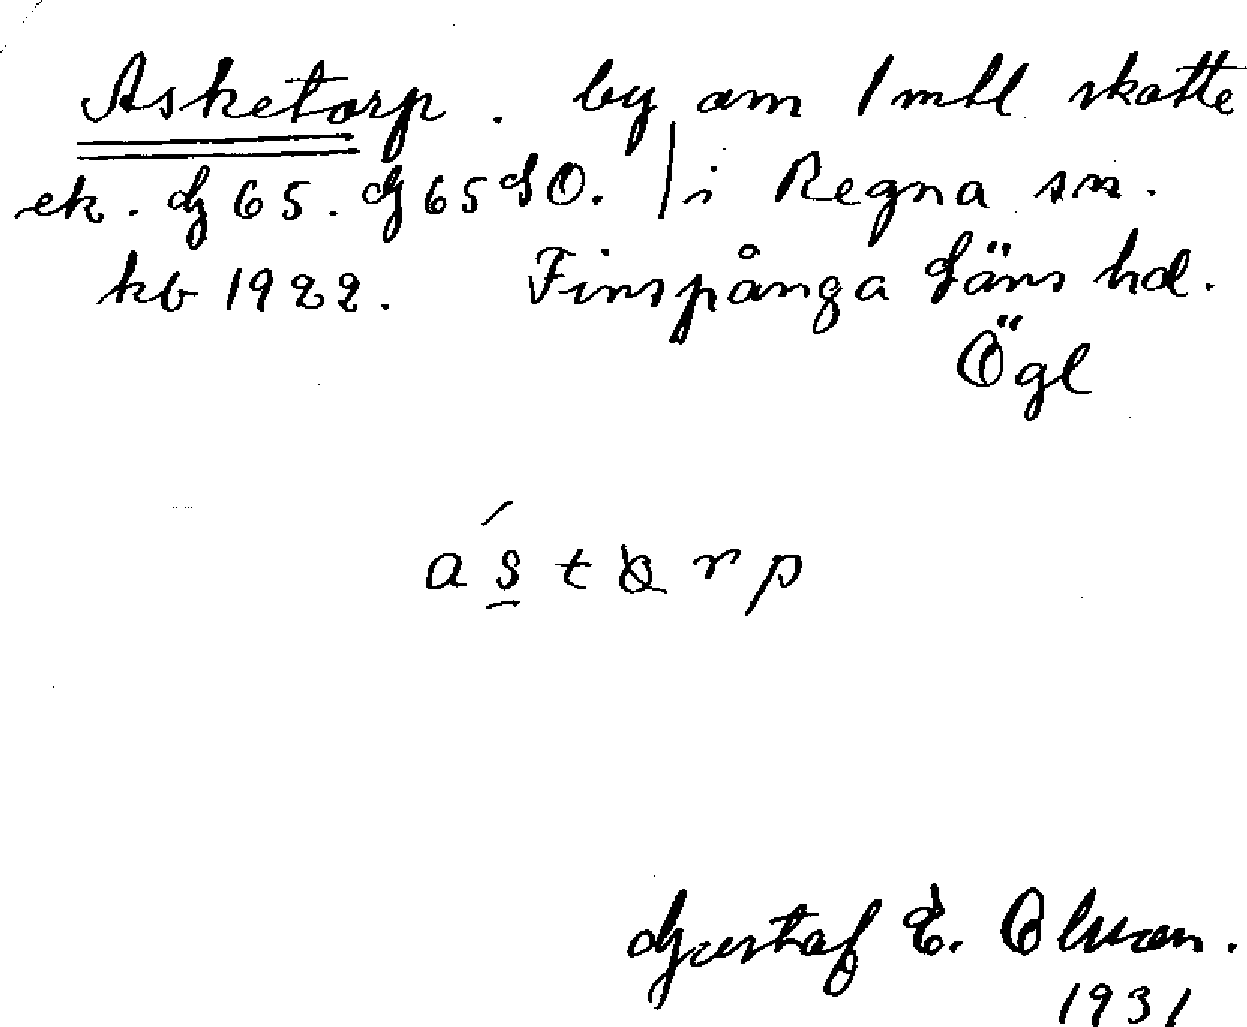 Asketorp. by om 1 mtl skatte
ek. G 65. G 65 SO. | i Regna sn.
kb 1922. Finspånga läns hd.
Ögl
Gustaf E. Olsson.
1931